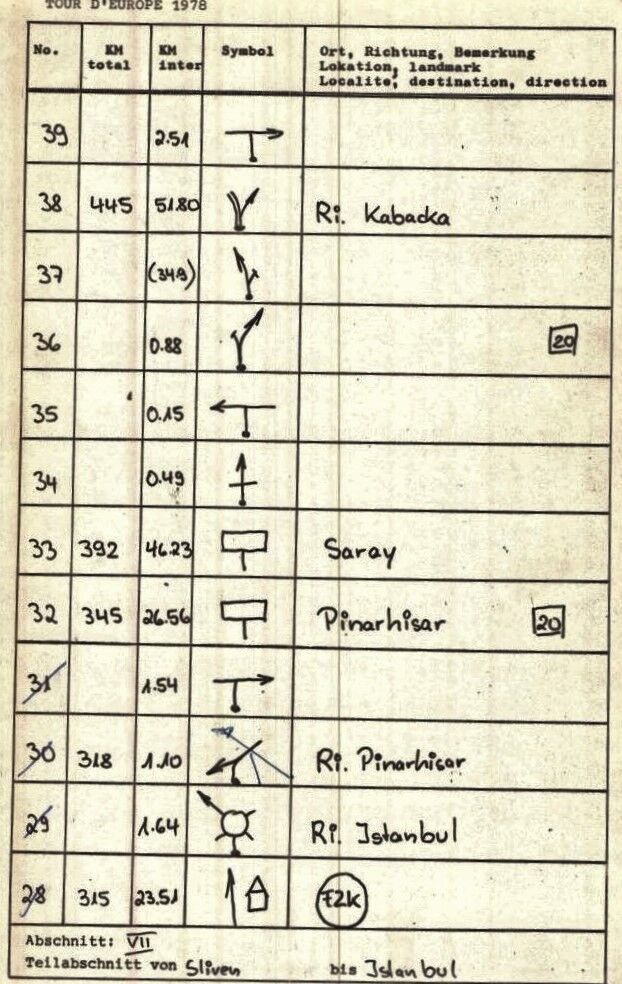 TOUR D'EUROPE 1978
No. KM total KM inter Symbol Ort, Richtung, Bemerkung
Lokation, landmark
Localite, destination, direction
39 2.51
38 445 51.80 Ri. Kabacka
37 (34.9)
36 0.88 20
35 0.15
34 0.49
33 392 46.23 Saray
32 345 26.56 Pinarhisar 20
31 1.54
30 318 1.10 Ri. Pinarhisar
29 1.64 Ri. Istanbul
28 315 23.51 FZK
Abschnitt: VII
Teilabschnitt von Sliven bis Istanbul